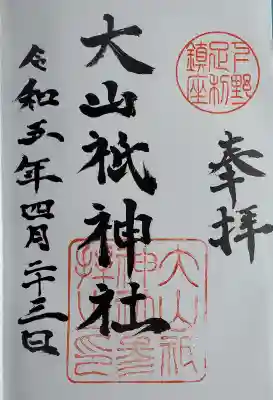 奉拝
戸野
足利
鎮座
大山祇神社
大山祇
神社参
拝之印
令和五年四月二十三日